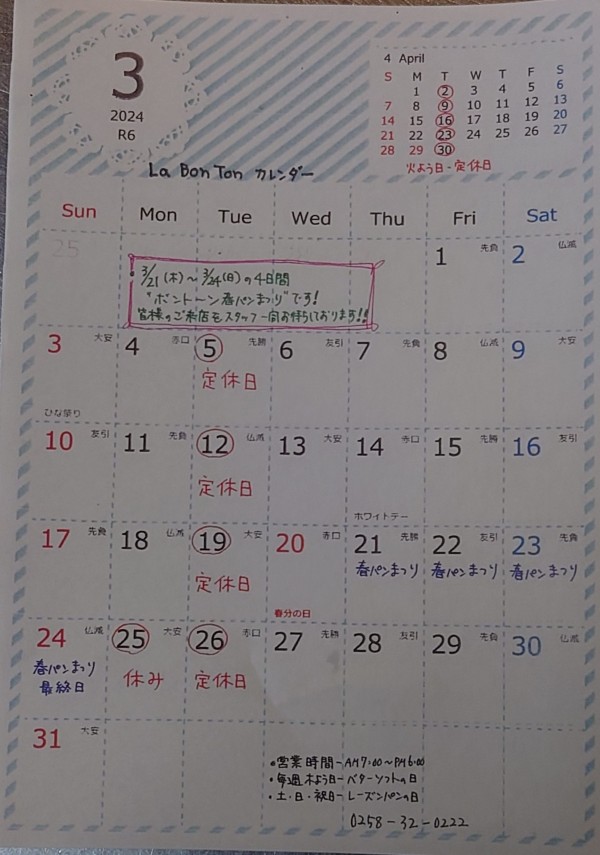 3
2024
R6
4 April
S M T W T F S
1 2 3 4 5 6
7 8 9 10 11 12 13
14 15 16 17 18 19 20
21 22 23 24 25 26 27
28 29 30
火よう日-定休日
La Bon Ton カレンダー
Sun Mon Tue Wed Thu Fri Sat
25 1 先負 2 仏滅
3/21(木)~3/24(日)の4日間
"ボントーン春パンまつり"です!
皆様のご来店をスタッフ一同お待ちしております!!
3 大安 4 赤口 5 先勝 6 友引 7 先負 8 仏滅 9 大安
定休日
ひな祭り
10 友引 11 先負 12 仏滅 13 大安 14 赤口 15 先勝 16 友引
定休日
ホワイトデー
17 先負 18 仏滅 19 大安 20 赤口 21 先勝 22 友引 23 先負
定休日 春パンまつり 春パンまつり 春パンまつり
春分の日
24 仏滅 25 大安 26 赤口 27 先勝 28 友引 29 先負 30 仏滅
春パンまつり 休み 定休日
最終日
31 大安
・営業時間-AM7:00~PM6:00
・毎週木よう日-バターソフトの日
・土・日・祝日-レーズンパンの日
0258-32-0222